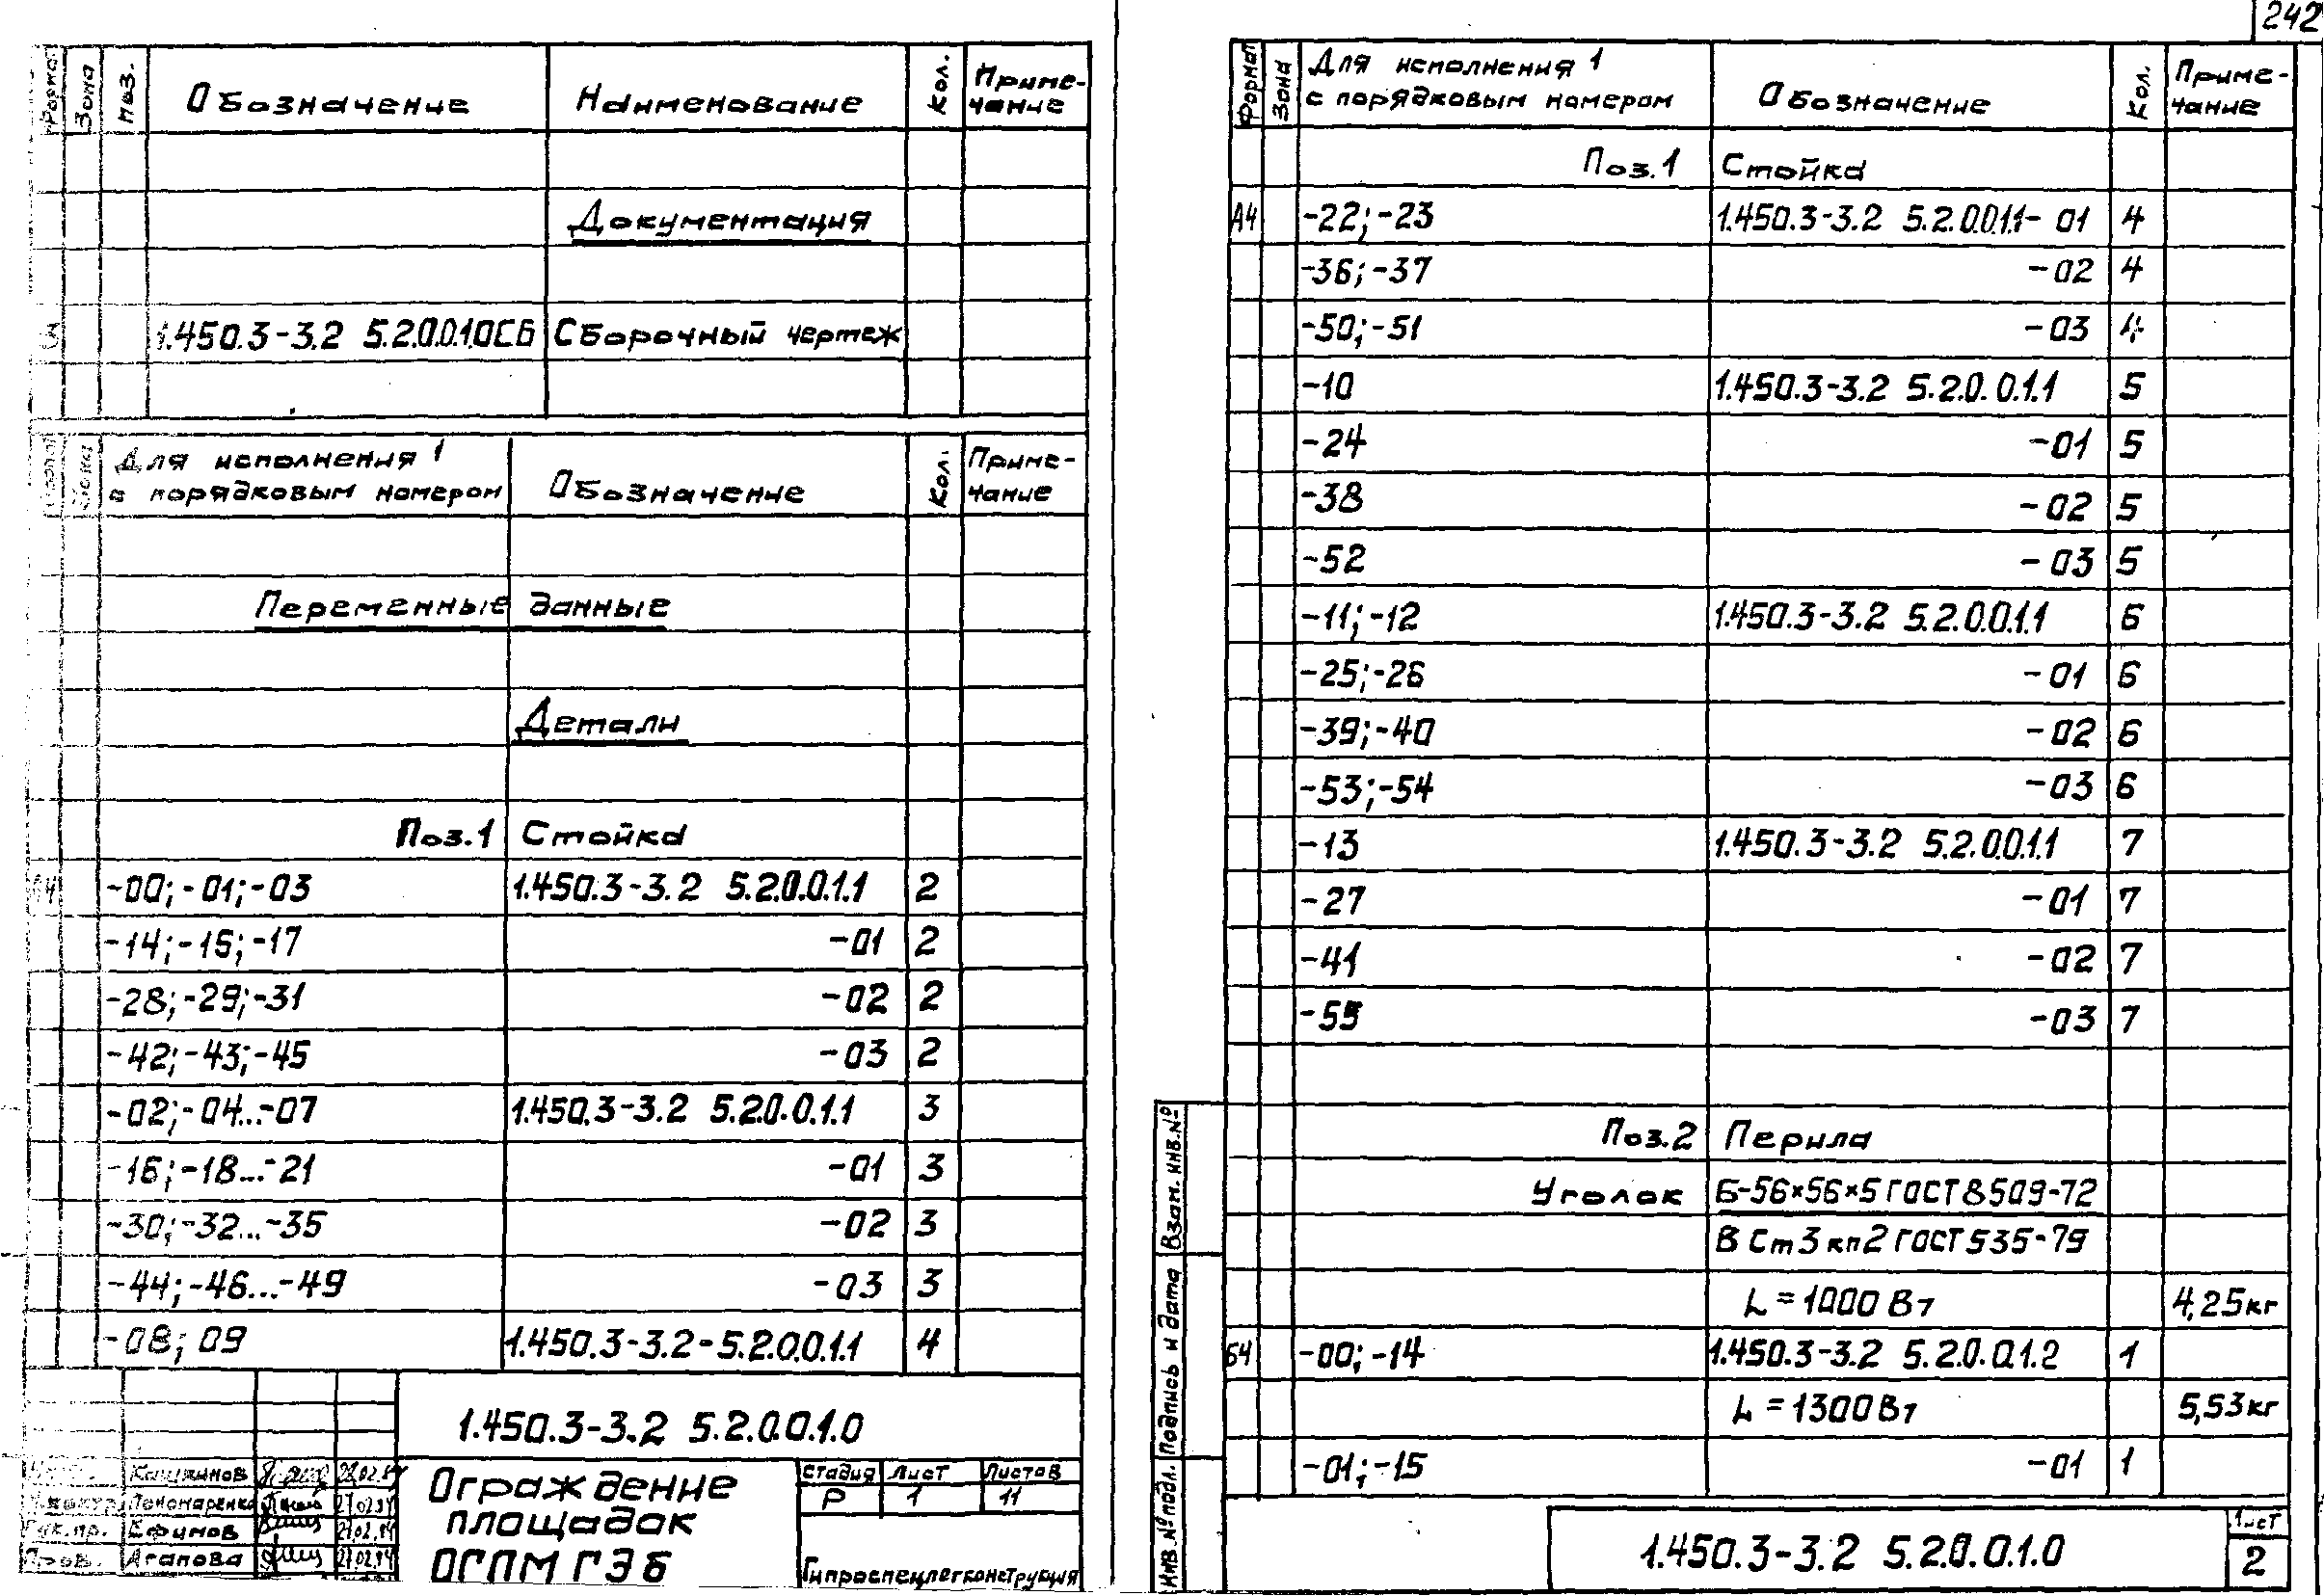 242
Формат Зона Поз. Обозначение Наименование Кол. Приме-
чание
Документация
1.450.3-3.2 5.2.0.0.1.0СБ Сборочный чертеж
Для исполнения 1
с порядковым номером Обозначение Кол. Приме-
чание
Переменные данные
Детали
Поз.1 Стойка
-00; -01; -03 1.450.3-3.2 5.2.0.0.1.1 2
-14; -15; -17 -01 2
-28; -29; -31 -02 2
-42; -43; -45 -03 2
-02; -04...-07 1.450.3-3.2 5.2.0.0.1.1 3
-16; -18...-21 -01 3
-30; -32...-35 -02 3
-44; -46...-49 -03 3
-08; 09 1.450.3-3.2-5.2.0.0.1.1 4
1.450.3-3.2 5.2.0.0.1.0
Ограждение
площадок
ОГПМ ГЭБ
Стадия Лист Листов
Р 1 11
Гипроспецлегконструкция
Пономаренко
Рук.пр. Ефимов
Пров. Агапова
Формат Зона Для исполнения 1
с порядковым номером Обозначение Кол. Приме-
чание
Поз.1 Стойка
А4 -22; -23 1.450.3-3.2 5.2.0.0.1.1- 01 4
-36; -37 -02 4
-50; -51 -03 4
-10 1.450.3-3.2 5.2.0.0.1.1 5
-24 -01 5
-38 -02 5
-52 -03 5
-11; -12 1.450.3-3.2 5.2.0.0.1.1 6
-25; -26 -01 6
-39; -40 -02 6
-53; -54 -03 6
-13 1.450.3-3.2 5.2.0.0.1.1 7
-27 -01 7
-41 -02 7
-55 -03 7
Поз.2 Перила
Уголок Б-56×56×5 ГОСТ 8509-72
В Ст3кп2 ГОСТ 535-79
L=1000 Вт 4,25кг
Б4 -00; -14 1.450.3-3.2 5.2.0.0.1.2 1
L=1300 Вт 5,53кг
-01; -15 -01 1
Инв.№ подл. Подпись и дата Взам.инв.№
1.450.3-3.2 5.2.0.0.1.0
Лист
2